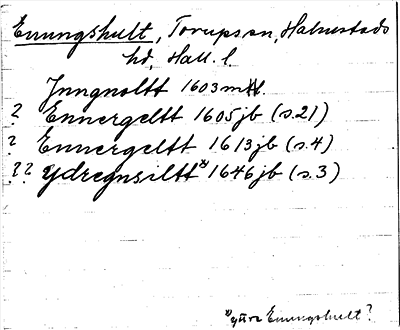 Enungshult, Torups sn, Halmstads
hd, Hall. l.
Inngnoltt 1603 mtl.
? Ennergeltt 1605 jb (s. 21)
? Ennergeltt 1613 jb (s. 4)
?? Ydregnsiltt* 1646 jb (s. 3)
Enungshult?